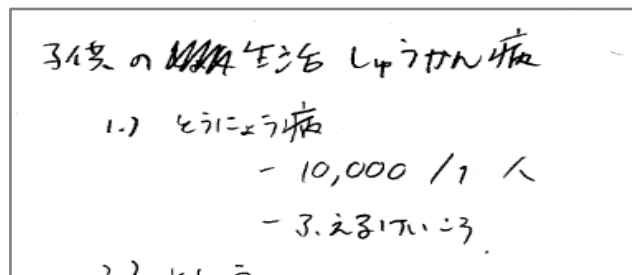 子供の生活しゅうかん病
1.) とうにょう病
- 10,000 / 1 人
- ふえるけいこう